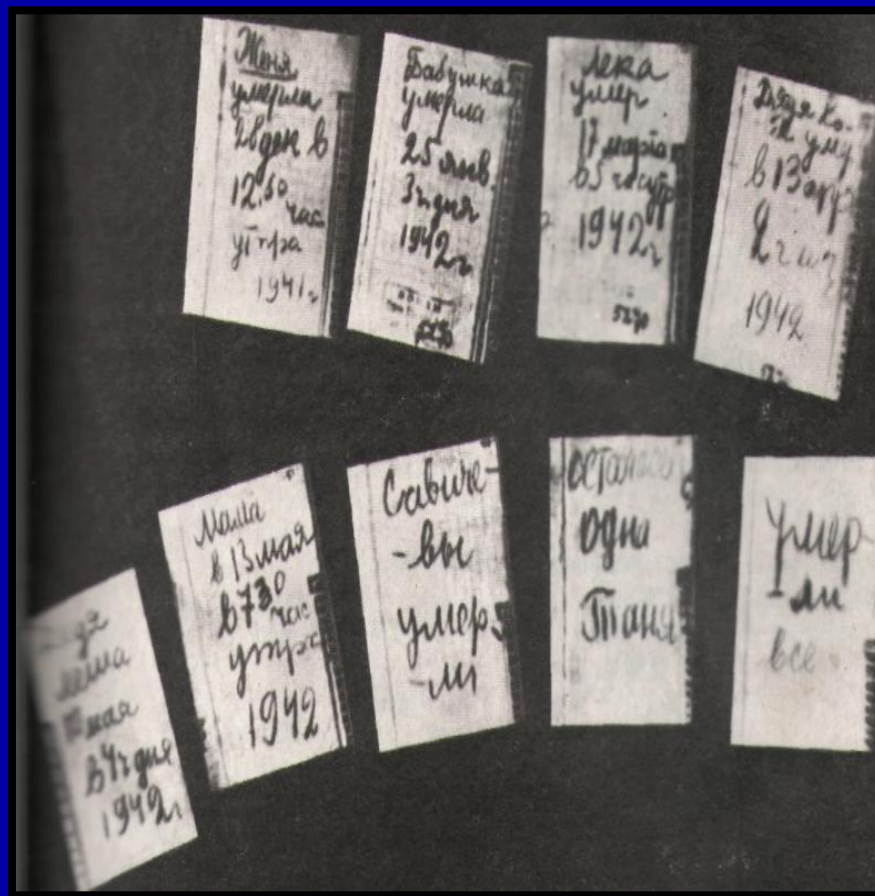 Женя
умерла
28 дек в
12.30
час
утра
1941 г
Бабушка
умерла
25 янв.
3ч дня
1942 г
Лека
умер
17 марта
в 5 час утр
1942 г
Дядя
в 13 апр
2 ч
1942
Леша
мая
в 4ч дня
1942 г
Мама
в 13 мая
в 7 30
час
утра
1942
Савиче-
-вы
умер
-ли
осталась
одна
Таня
Умер
-ли
все